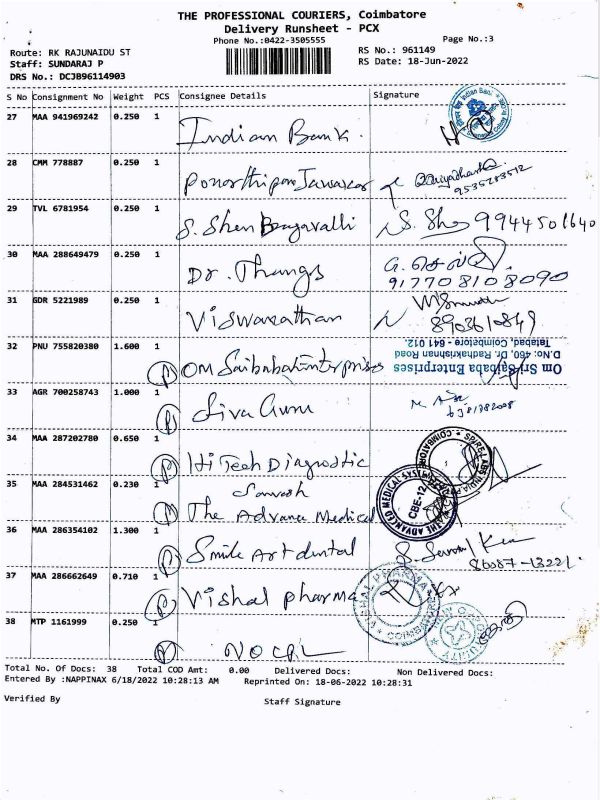 THE PROFESSIONAL COURIERS, Coimbatore
Delivery Runsheet - PCX
Phone No.:0422-3505555
Page No.:3
Route: RK RAJUNAIDU ST
RS No.: 961149
Staff: SUNDARAJ P
RS Date: 18-Jun-2022
DRS No.: DCJB96114903
S No Consignment No Weight PCS Consignee Details Signature
27 MAA 941969242 0.250 1 Indian Bank
28 CMM 778887 0.250 1
9535283512
29 TVL 6781954 0.250 1 S. Shen 9944501640
30 MAA 288649479 0.250 1 Dr. Thangs
917708108090
31 GDR 5221989 0.250 1 Viswanathan
8903610849
32 PNU 755820380 1.600 1 Om Saibaba Enterprises
Om Sri Saibaba Enterprises
D.No: 460, Dr. Radhakrishnan Road
Tatabad, Coimbatore - 641 012.
33 AGR 700258743 1.000 1 Siva Guru
34 MAA 287202780 0.650 1 Hi Tech Diagnostic
35 MAA 284531462 0.230 1
The Advance Medical
CBE-12
36 MAA 286354102 1.300 1 Smile Art dental
37 MAA 286662649 0.710 1 Vishal pharma
VISHAL PHARMA
COIMBATORE
38 MTP 1161999 0.250 1
Total No. Of Docs: 38 Total COD Amt: 0.00 Delivered Docs: Non Delivered Docs:
Entered By :NAPPINAX 6/18/2022 10:28:13 AM Reprinted On: 18-06-2022 10:28:31
Verified By Staff Signature